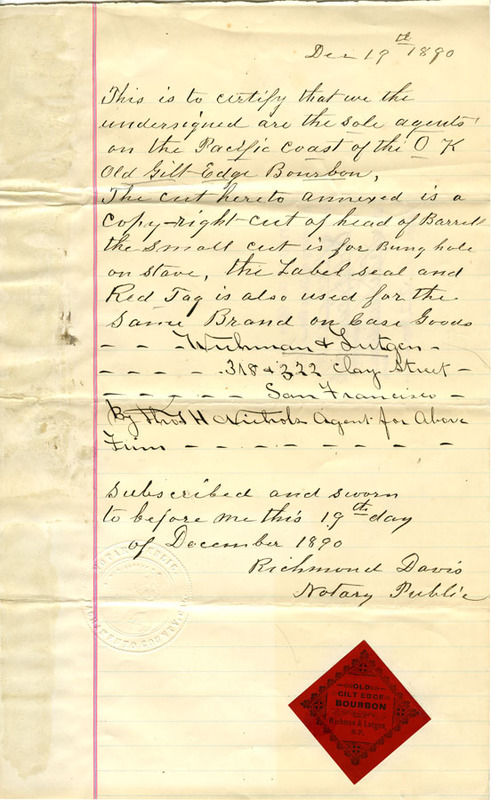 Dec 19th 1890
This is to certify that we the
undersigned are the sole agents
on the Pacific coast of the O K
Old Gilt Edge Bourbon,
The cut hereto annexed is a
Copy-right cut of head of Barrell
the Small cut is for Bung hole
on stave, the Label seal and
Red Tag is also used for the
Same Brand on Case Goods
- - - Wichman & Lutgen -
- - - - - 318 & 322 Clay Street -
- - - - - - San Francisco -
By Thos H Nichols Agent for Above
Firm - - - - - - - - -
Subscribed and sworn
to before me this 19th day
of December 1890
Richmond Davis
Notary Public
NOTARY PUBLIC
COUNTY, CAL
OLD
GILT EDGE
BOURBON
Wichman & Lutgen
S.F.